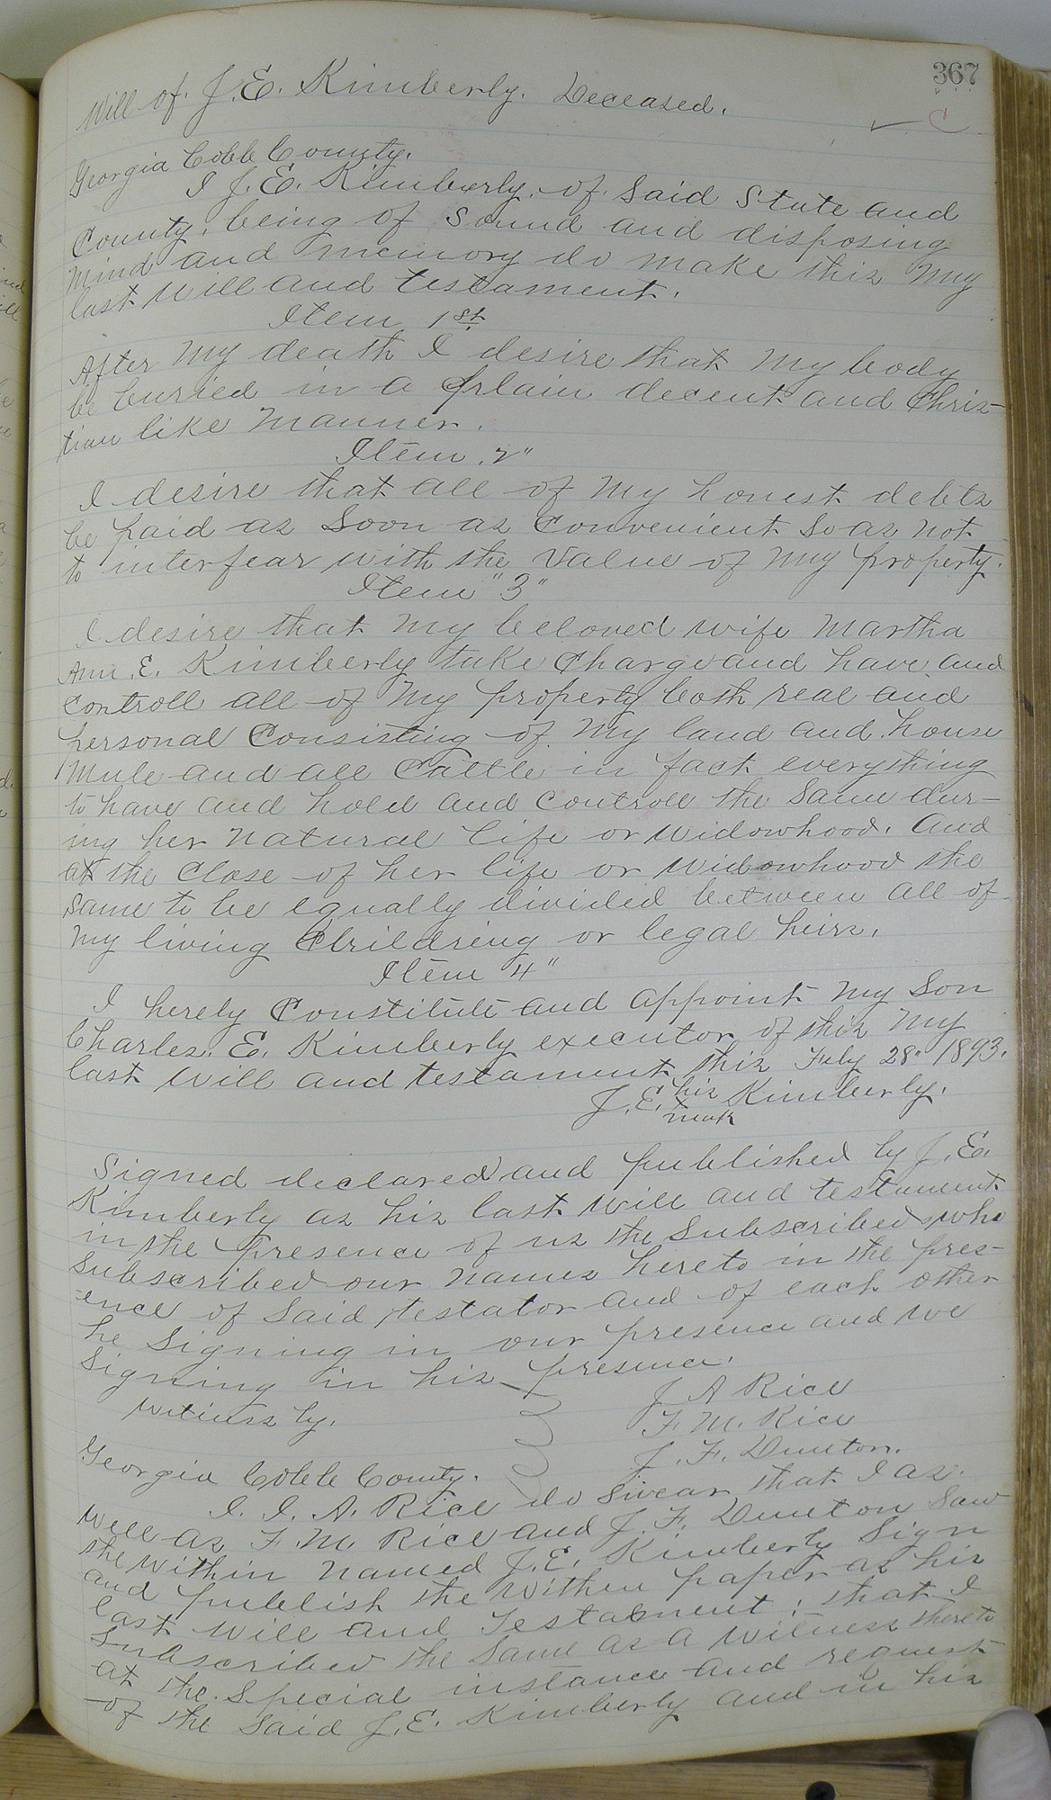 367
Will of J.E. Kimberly. Deceased.
✓ C
Georgia Cobb County.
I J.E. Kimberly. of said State and
County, being of Sound and disposing
Mind and memory do make this my
last Will and testament.
Item 1st
After My death I desire that My body
be buried in a plain decent and Chris-
tian like Manner.
Item 2"
I desire that all of My honest debts
be paid as Soon as Convenient So as not
to interfear with the Value of My property.
Item "3"
I desire that My beloved wife Martha
Ann. E. Kimberly take Charge and have and
Controll all of My property both real and
personal Consisting of My land and house
1 Mule and all Cattle in fact everything
to have and hold and Controll the Same dur-
ing her Natural life or Widowhood. And
at the Close of her life or Widowhood the
Same to be equally divided between all of
My living Children or legal heirs.
Item "4"
I hereby Constitute and appoint My Son
Charles. E. Kimberly executor of this My
last Will and testament this July 28" 1893.
J.E. his mark Kimberly.
Signed declared and published by J.E.
Kimberly as his last Will and testament
in the presence of us the Subscribed who
Subscribed our Names hereto in the pres-
ence of Said testator and of each other
he Signing in our presence and we
Signing in his presence.
Witness by.
J A Rice
F. M. Rice
J. F. Dunton.
Georgia Cobb County.
I. J. A. Rice do Swear that I as
Well as F. M. Rice and J. F. Dunton Saw
the Within Named J.E. Kimberly Sign
and publish the Within paper as his
last Will and Testament; that I
Subscribed the Same as a Witness thereto
at the Special instance and request
of the Said J.E. Kimberly and in his